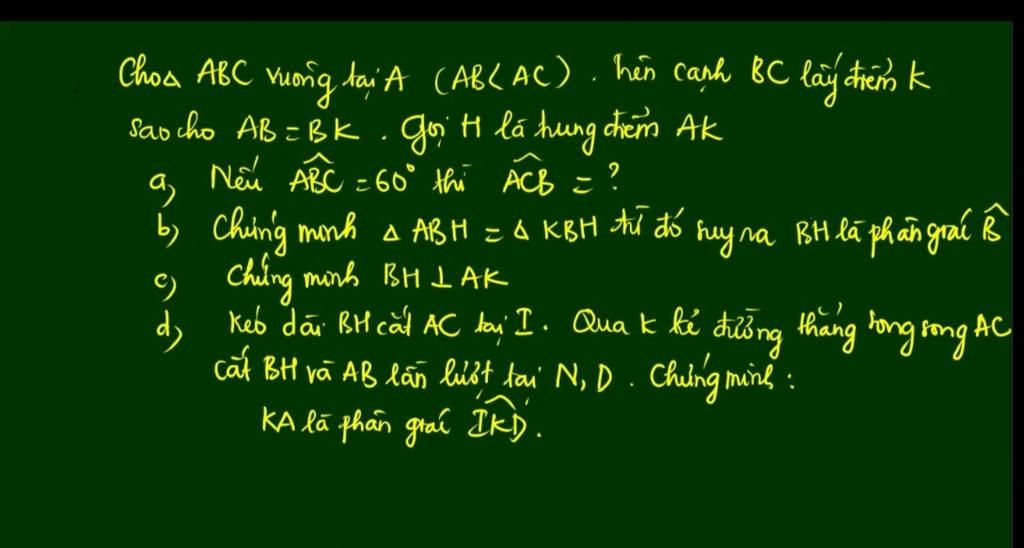 Cho △ ABC vuông tại A (AB < AC). Trên cạnh BC lấy điểm K
sao cho AB = BK. Gọi H là trung điểm AK
a, Nếu \widehat{ABC} = 60° thì \widehat{ACB} = ?
b) Chứng minh △ ABH = △ KBH từ đó suy ra BH là phân giác \widehat{B}
c) Chứng minh BH ⊥ AK
d, Kéo dài BH cắt AC tại I. Qua K kẻ đường thẳng song song AC
cắt BH và AB lần lượt tại N, D. Chứng minh:
KA là phân giác \widehat{IKD}.